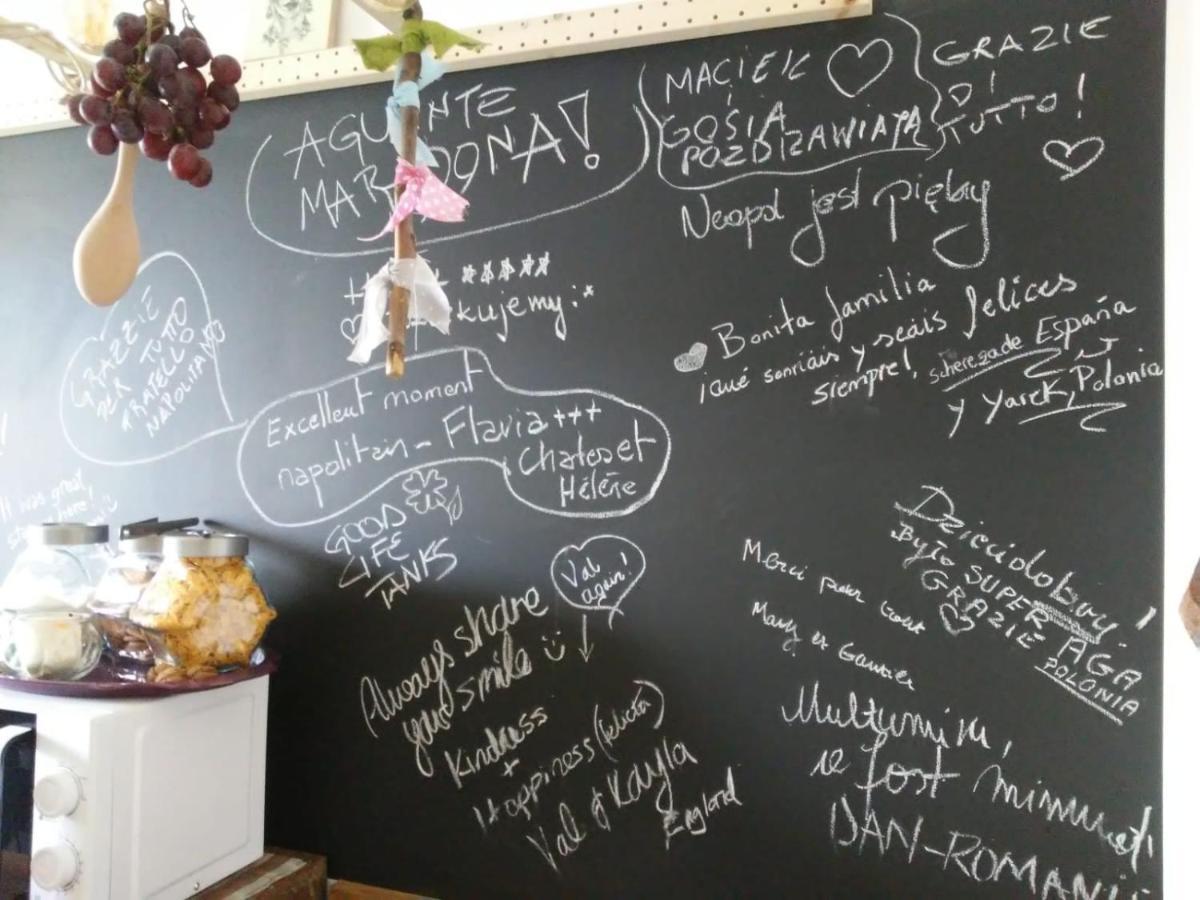 AGU NTE
MAR DONA!
MACIEK
GOSIA
POZDRAWIAJĄ
GRAZIE
DI
TUTTO!
jest piękny
kujemy :*
GRAZZIE
PER TUTTO
FRATELLO
NAPOLITANO
Bonita familia
¡qué sonriáis y seáis felices
siempre!, scherezade España
y Yarek, Polonia
Excellent moment
napolitain – Flavia +++
Charles et
Hélène
It was great
GOOD
LIFE
TANKS
Val
again!
Always share
your smile :)
Kindness
+
Happiness (felicità)
Val & Kayla
England
Dzieńdobry!
Było SUPER
GRAZIE AGA
POLONIA
Merci pour tout
Mary et Gauvier
Multumim,
a fost minunat!
DAN-ROMANIA